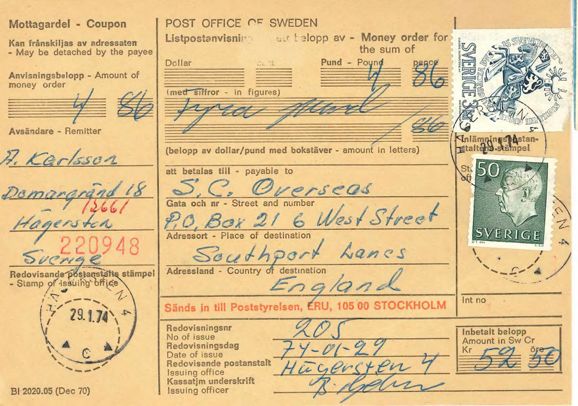 Mottagardel - Coupon
Kan frånskiljas av adressaten
- May be detached by the payee
Anvisningsbelopp - Amount of
money order
4 86
Avsändare - Remitter
A. Karlsson
Domargränd 18
12661
Hägersten
220948
Sverige
Redovisande postanstalts stämpel
- Stamp of issuing office
HÄGERSTEN 4
29.1.74
C
BI 2020.05 (Dec 70)
POST OFFICE OF SWEDEN
Listpostanvisning belopp av - Money order for
the sum of
Dollar cent Pund - Pound pence
4 86
(med siffror - in figures)
Fyra pund
/86
(belopp av dollar/pund med bokstäver - amount in letters)
att betalas till - payable to
S.C. Overseas
Gata och nr - Street and number
P.O. Box 21 6 West Street
Adressort - Place of destination
Southport Lancs
Adressland - Country of destination
England
Sänds in till Poststyrelsen, ERU, 105 00 STOCKHOLM
Redovisningsnr
No of issue
205
Redovisningsdag
Date of issue
74-01-29
Redovisande postanstalt
Issuing office
Hägersten 4
Kassatjm underskrift
Issuing officer
SVERIGE
Inlämningspostan-
staltens stämpel
29.1.74
50
SVERIGE
Int no
Inbetalt belopp
Amount in Sw Cr
Kr öre
52 50